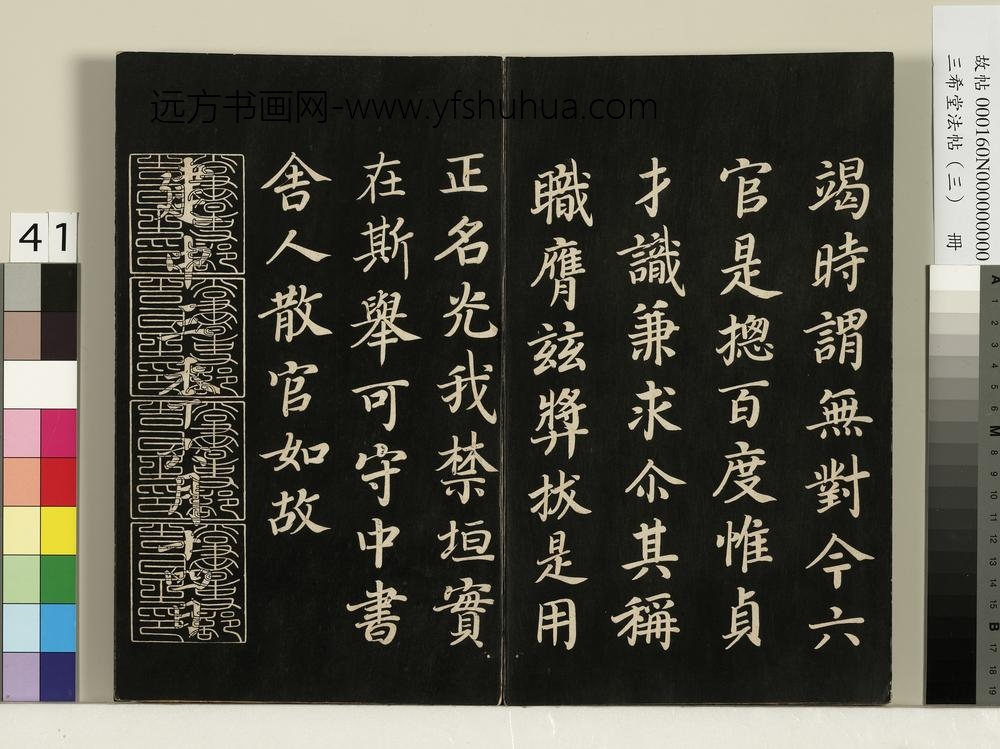 竭時謂無對今六
官是摠百度惟貞
才識兼求尒其稱
職膺茲獎拔是用
正名光我禁垣實
在斯舉可守中書
舍人散官如故
远方书画网-www.yfshuhua.com
故帖 000160N000000000
三希堂法帖（三） 冊
41
A 1 2 3 4 5 6 M 8 9 10 11 12 13 14 15 B 17 18 19